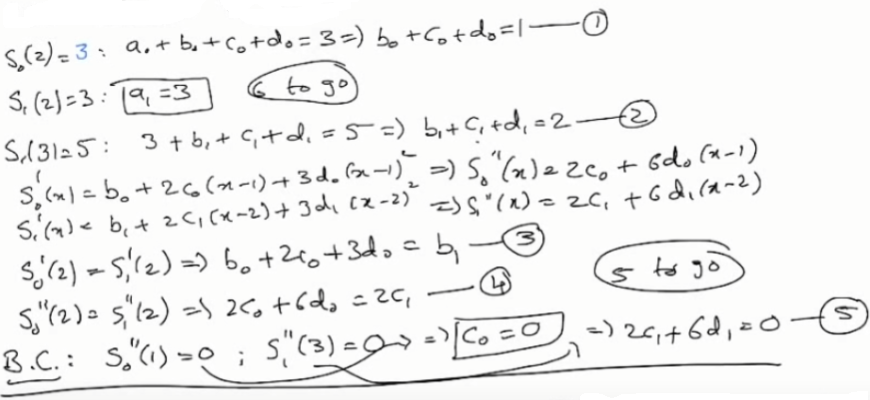 S₀(2) = 3 : a₀ + b₀ + c₀ + d₀ = 3 => b₀ + c₀ + d₀ = 1 — ①
S₁(2) = 3 : a₁ = 3 6 to go
S₁(3) = 5 : 3 + b₁ + c₁ + d₁ = 5 => b₁ + c₁ + d₁ = 2 — ②
S₀'(x) = b₀ + 2c₀(x-1) + 3d₀(x-1)² => S₀"(x) = 2c₀ + 6d₀(x-1)
S₁'(x) = b₁ + 2c₁(x-2) + 3d₁(x-2)² => S₁"(x) = 2c₁ + 6d₁(x-2)
S₀'(2) = S₁'(2) => b₀ + 2c₀ + 3d₀ = b₁ — ③
5 to go
S₀"(2) = S₁"(2) => 2c₀ + 6d₀ = 2c₁ — ④
B.C. : S₀"(1) = 0 ; S₁"(3) = 0 => c₀ = 0 => 2c₁ + 6d₁ = 0 — ⑤